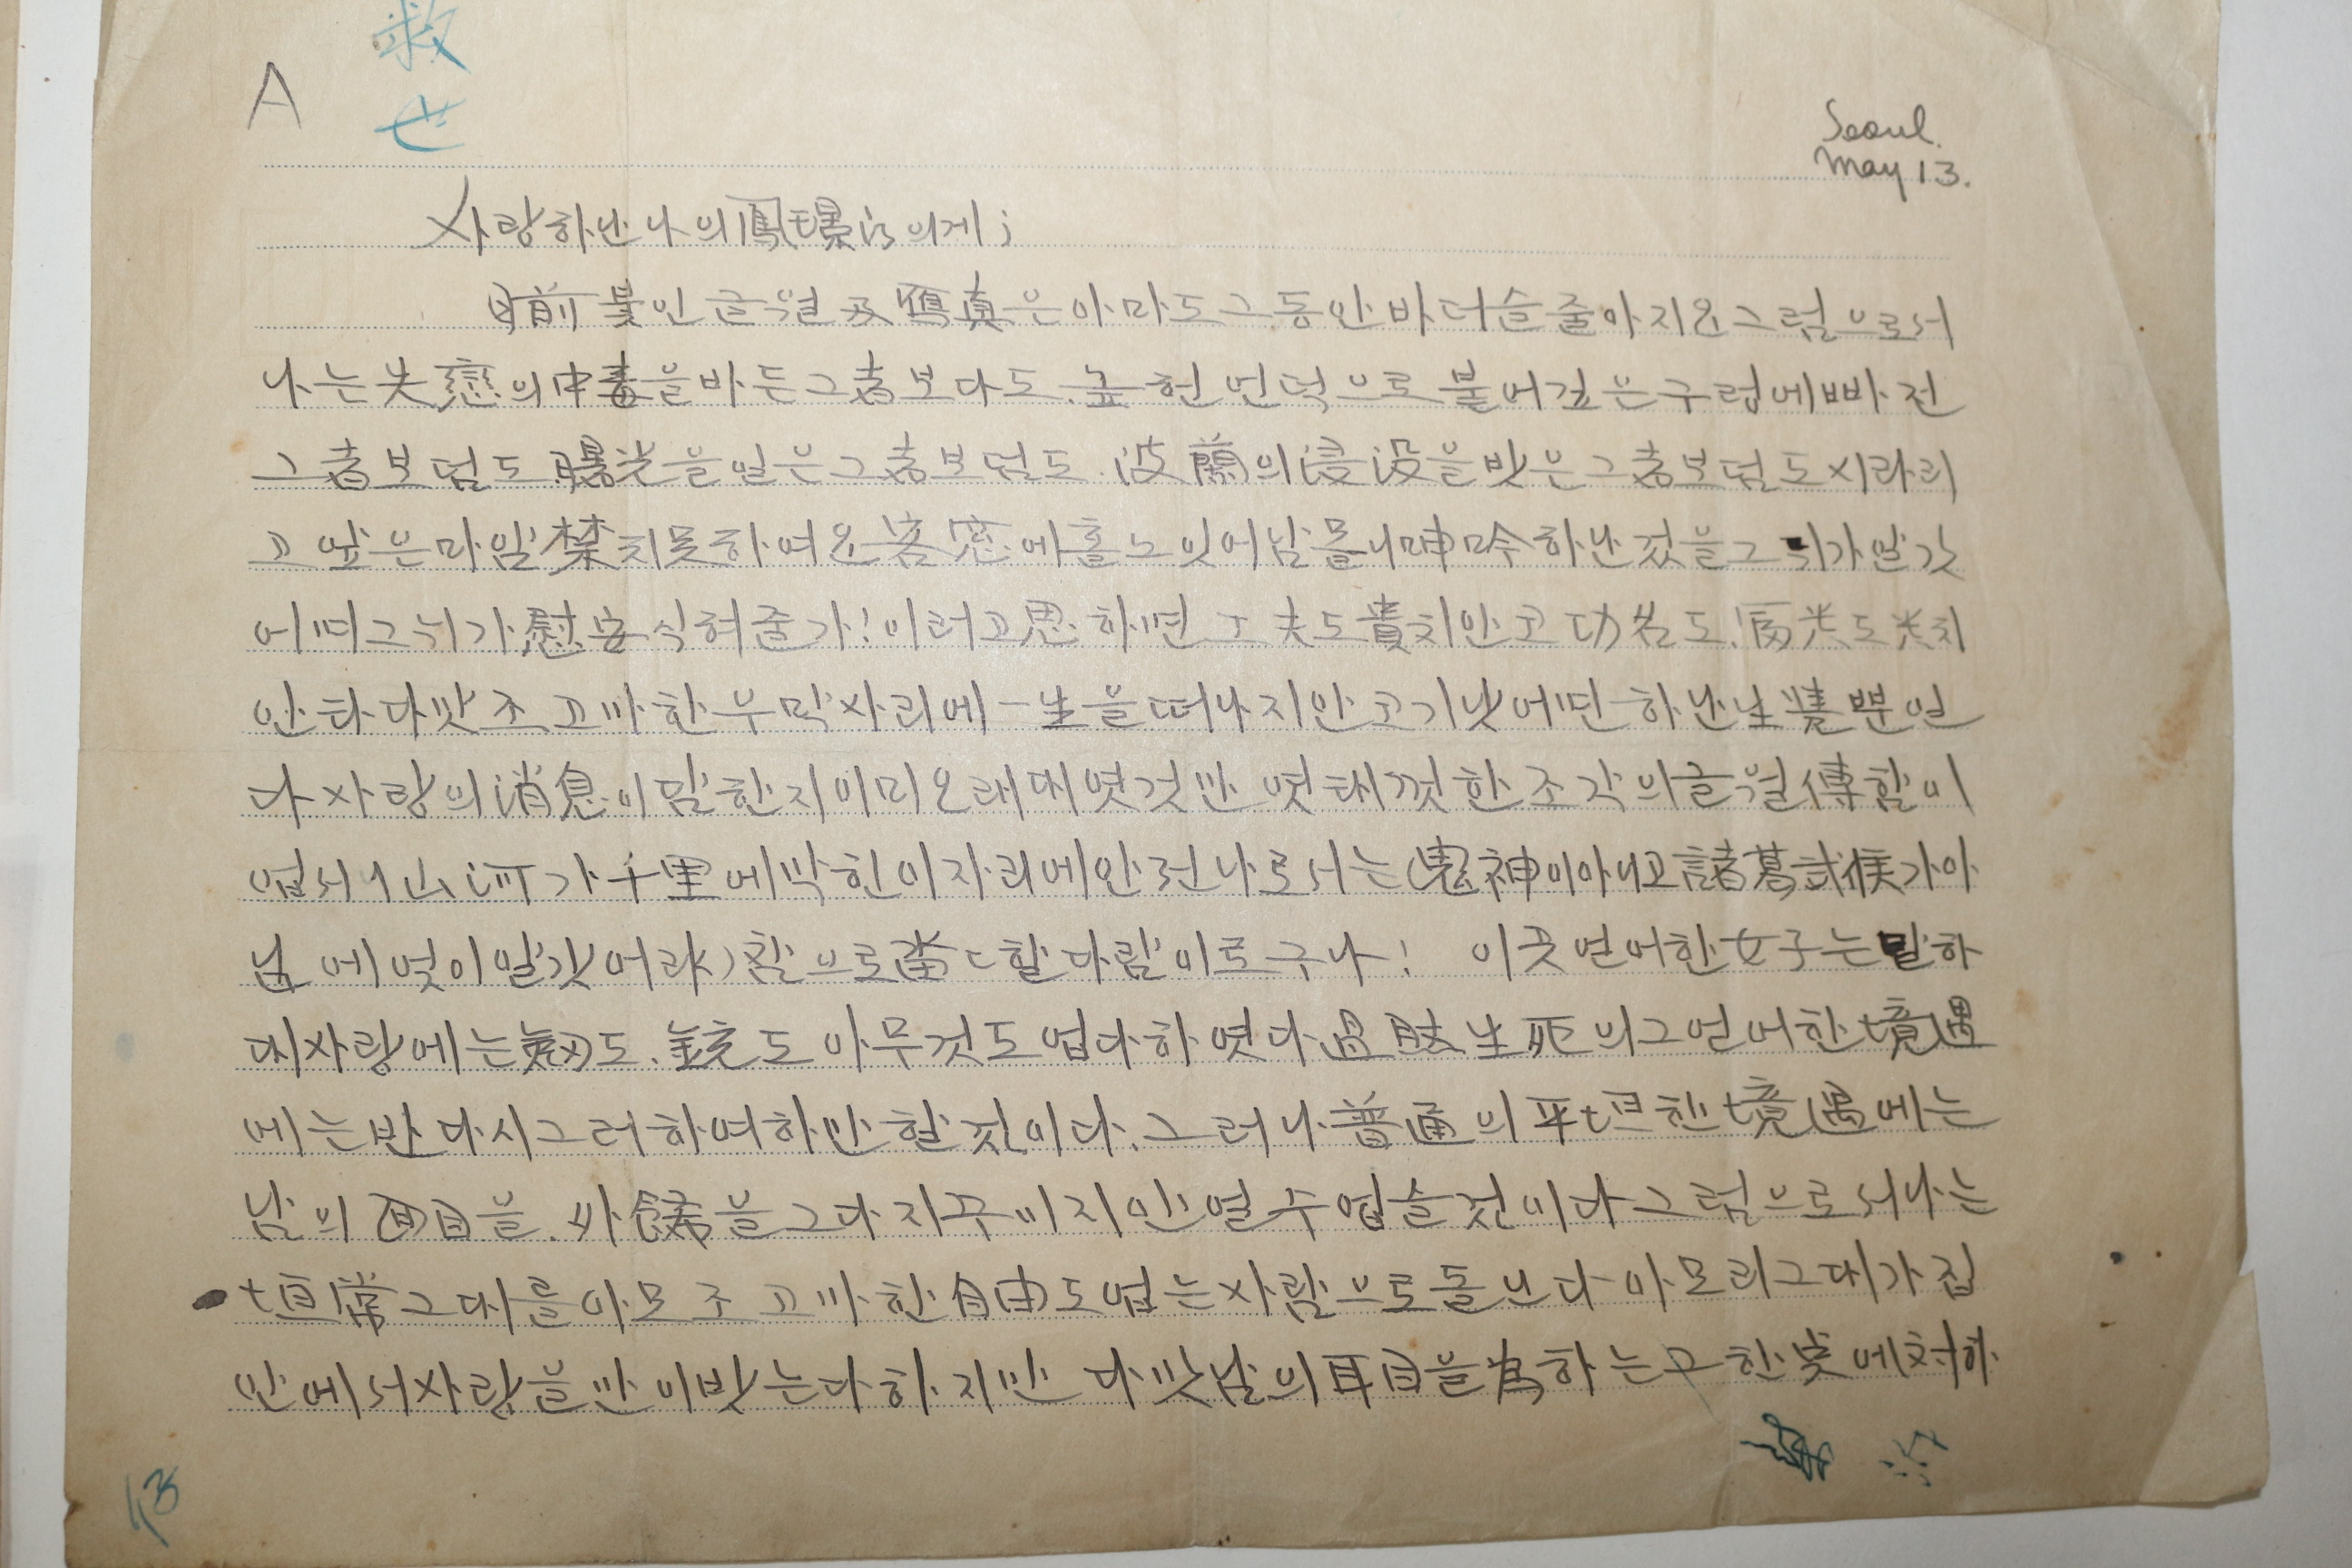 救
世
A
Seoul.
May 13.
사랑하난 나의 鳳環 is 의게;
日前 붗인 글월 及 寫真은 아마도 그동안 바더슬줄 아지요 그럼으로서
나는 失戀의 中毒을 바든 그 者보다도. 높헌 언덕으로 불어 깊은 구렁에 빠전
그 者보덤도 曙光을 일은 그 者보덤도. 波蘭의 浸沒을 밧은 그 者보덤도 시라리
고 앞은 마암 禁치 못하여 요 客窓에 홀노 잇어 남몰내 呻吟하난 것을 그 뉘가 알갓
어며 그 뉘가 慰安식혀 줄가! 이러고 思하면 工夫도 貴치 안고 功名도. 光도 光치
안타 다맛 조고마한 부막사리에 一生을 떠나지 안고 기낫에면 하난 生覺뿐인
다 사랑의 消息이 맘한지 이미 오래 대엿것만 엿태껏 한 조각의 글월 傳함이
업서니 山河가 千里에 막힌 이 자리에 안전 나로서는 (鬼神이 아니고 諸葛武侯가 아
님에 엇이 알갓어랴) 참으로 畓畓할 다람이로구나! 이곳 언어한 女子는 말하
대 사랑에는 劍도. 銃도 아무것도 업다 하엿다 過時 生死의 그 언어한 境遇
에는 반다시 그러하여 하만 할 것이다. 그러나 普通의 平坦한 境遇에는
남의 面目을. 을 그다지 꾸미지 안열 수 업슬 것이다 그럼으로서 나는
恒常 그대를 아모 조고마한 自由도 업는 사람으로 돌닌다 아모리 그대가 집
안에서 사랑을 만이 밧는다 하지만 다맛 남의 耳目을 爲하는 구한 못에 対하
13